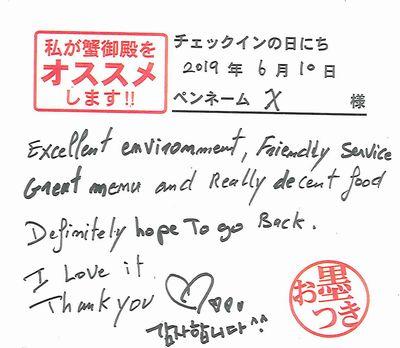 私が蟹御殿を
オススメ
します!!
チェックインの日にち
2019 年 6 月 10 日
ペンネーム X 様
Excellent environment, Friendly Service
Great menu and Really decent food
Definitely hope To go Back.
I Love it
Thank you
감사합니다^^
お墨つき